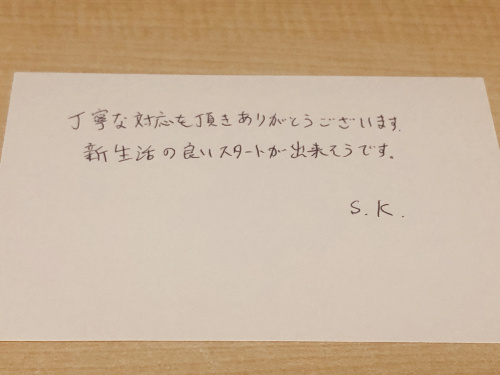 丁寧な対応を頂きありがとうございます.
新生活の良いスタートが出来そうです.
S.K.